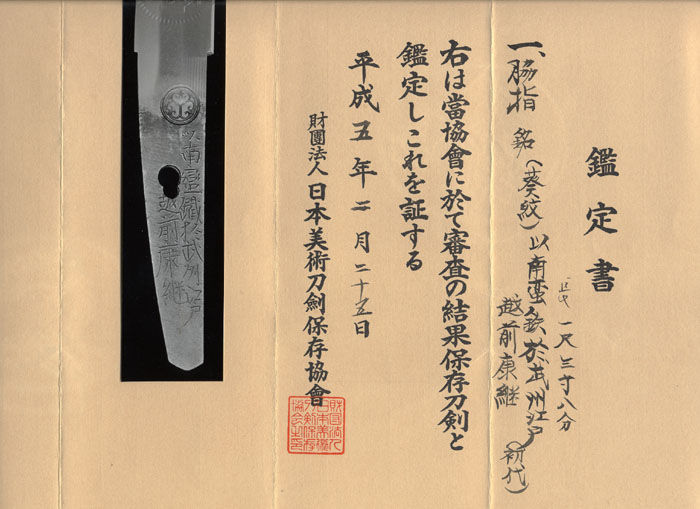 鑑定書
一、脇指 銘(葵紋)以南蛮鉄於武州江戸
越前康継 (初代)
一尺三寸八分
右は當協會に於て審査の結果保存刀剣と
鑑定しこれを証する
平成五年二月二十五日
財團法人日本美術刀劍保存協會
以南蠻鐵於武州江戸
越前康継